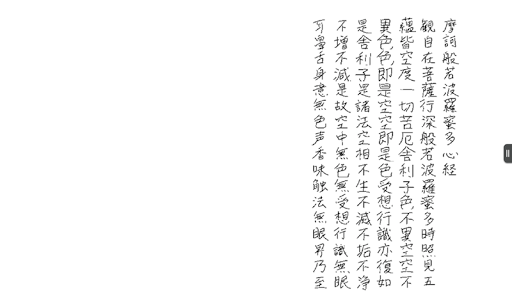 摩訶般若波羅蜜多心経
観自在菩薩行深般若波羅蜜多時照見五
蘊皆空度一切苦厄舎利子色不異空空不
異色色即是空空即是色受想行識亦復如
是舎利子是諸法空相不生不滅不垢不浄
不増不減是故空中無色無受想行識無眼
耳鼻舌身意無色声香味触法無眼界乃至